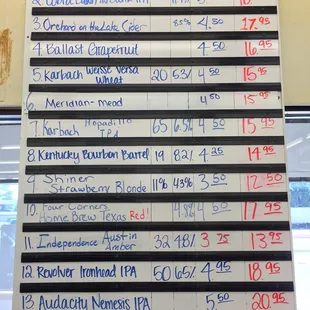 3 Orchard on the Lake Cider 4.50 17.95
4 Ballast Grapefruit 4.50 16.95
5 Karbach Weisse Versa Wheat 20 4.50 15.95
6 Meridian-mead 4.50 15.95
7 Karbach Hopadillo IPA 65 4.50 15.95
8 Kentucky Bourbon Barrel 19 82% 4.25 14.95
9 Shiner Strawberry Blonde 3.50 12.50
10. Four Corners Home Brew Texas Red! 4.50 17.95
11 Independence Austin Amber 32 48% 3.75 13.95
12 Revolver Ironhead IPA 50 65% 4.95 18.95
13 Audacity Nemesis IPA 5.50 20.95